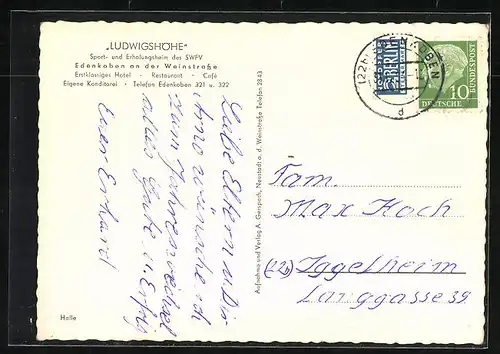 „LUDWIGSHÖHE"
Sport- und Erholungsheim des SWFV
Edenkoben an der Weinstraße
Erstklassiges Hotel - Restaurant - Café
Eigene Konditorei - Telefon Edenkoben 321 u. 322
Liebe Eltern u.
wünsche ich
zum Jahreswechsel
alles Gute u. Erfolg
Euer Erhard
Halle
Aufnahme und Verlag A. Genspach, Neustadt a. d. Weinstraße Telefon 2843
(22b) EDENKOBEN
d
NOTOPFER
2 BERLIN
STEUERMARKE
DEUTSCHE
BUNDESPOST
10
Fam.
Max Koch
(22b) Iggelheim
Langgasse 39